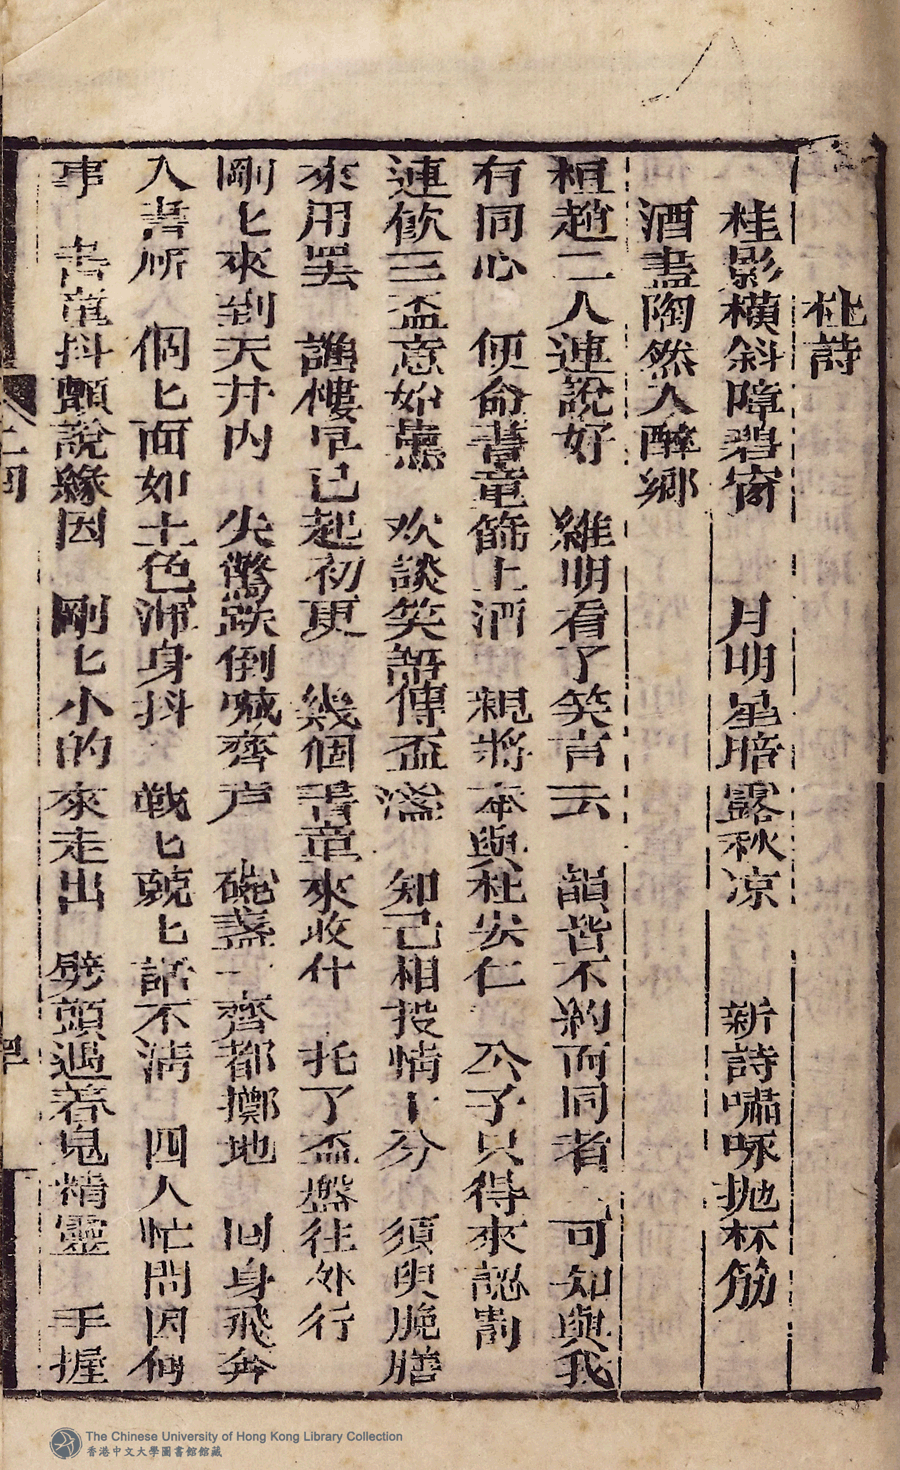 杜詩
桂影橫斜障碧窗 月明星暗露秋凉 新詩嘯咏抛杯筯
酒盡陶然入醉鄉
桓趙二人連說好 維明看了笑言云 韻皆不約而同者 可知與我
有同心 便命書童篩上酒 親將奉與杜安仁 公子只得來認罰
連飲三盃意始薰 欢談笑語傳盃盞 知己相投情十分 須臾脆膳
來用罢 譙樓早已起初更 幾個書童來收什 托了盃盤往外行
剛匕來到天井內 尖驚跌倒喊齊声 碗盞一齊都擲地 回身飛奔
入書所 個匕面如土色渾身抖 戰匕兢匕話不清 四人忙問因何
事 書童抖顫說緣因 剛匕小的來走出 劈頭遇着鬼精靈 手握
The Chinese University of Hong Kong Library Collection
香港中文大學圖書館館藏